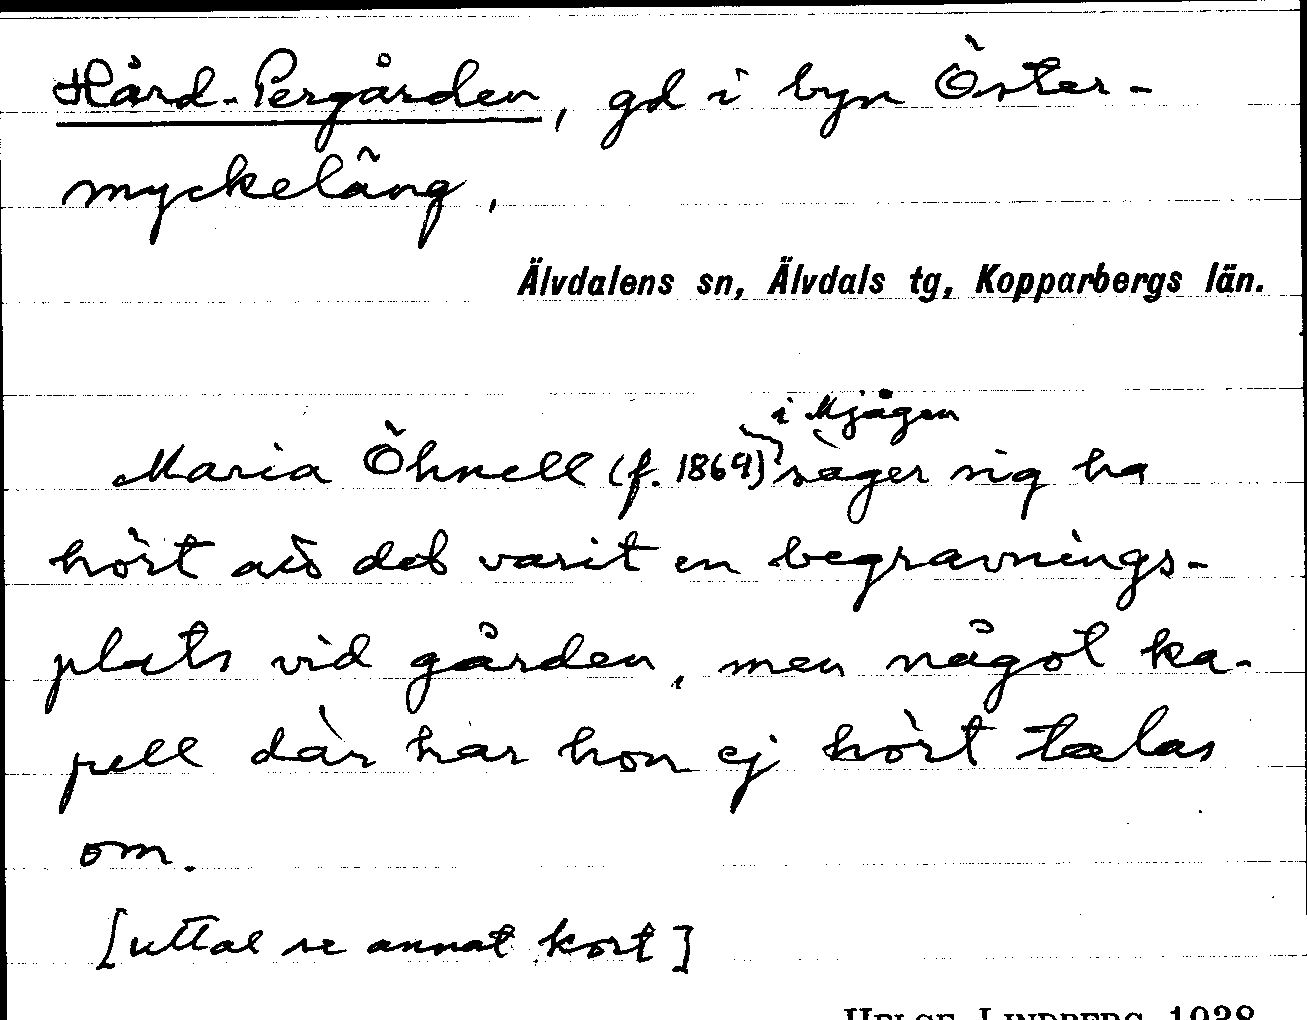 Hård-Pergården, gd i byn Öster-
myckeläng,
Älvdalens sn, Älvdals tg, Kopparbergs län.
i Mjågen
Maria Öhnell (f. 1869) säger sig ha
hört att det varit en begravnings-
plats vid gården, men något ka-
pell där har hon ej hört talas
om.
[uttal se annat kort]
HELGE LINDBERG 1938